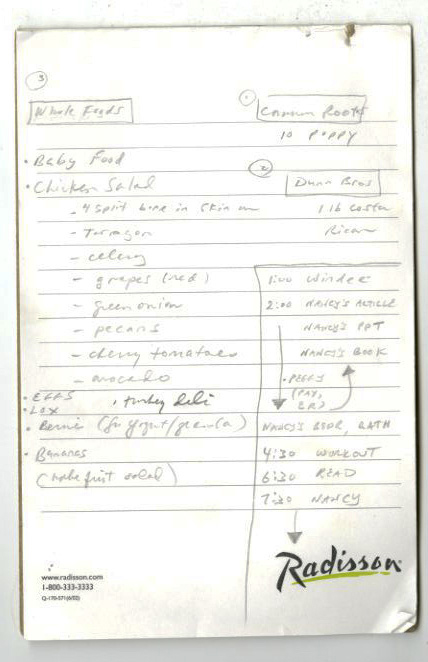 3
Whole Foods
• Baby Food
• Chicken Salad
- 4 split bone in skin on
- Tarragon
- celery
- grapes (red)
- green onion
- pecans
- cherry tomatoes
- avocado
• EGGS
• LOX
, turkey deli
• Berries (for yogurt/granola)
• Bananas
(make fruit salad)
1
Common Roots
10 POPPY
2
Dunn Bros
1 lb Costa
Rican
1:00
2:00 NANCY'S ARTICLE
NANCY'S PPT
NANCY'S BOOK
• PEGGY
(PAY,
NANCY'S BOOK, BATH
4:30 WORKOUT
6:30 READ
7:30 NANCY
www.radisson.com
1-800-333-3333
Q-170-571(6/02)
Radisson